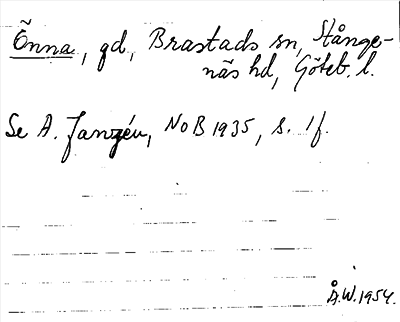 Õnna, gd, Brastads sn, Stånge-
näs hd, Göteb. l.
Se A. Janzén, NoB 1935, s. 1f.
Å.W. 1954.